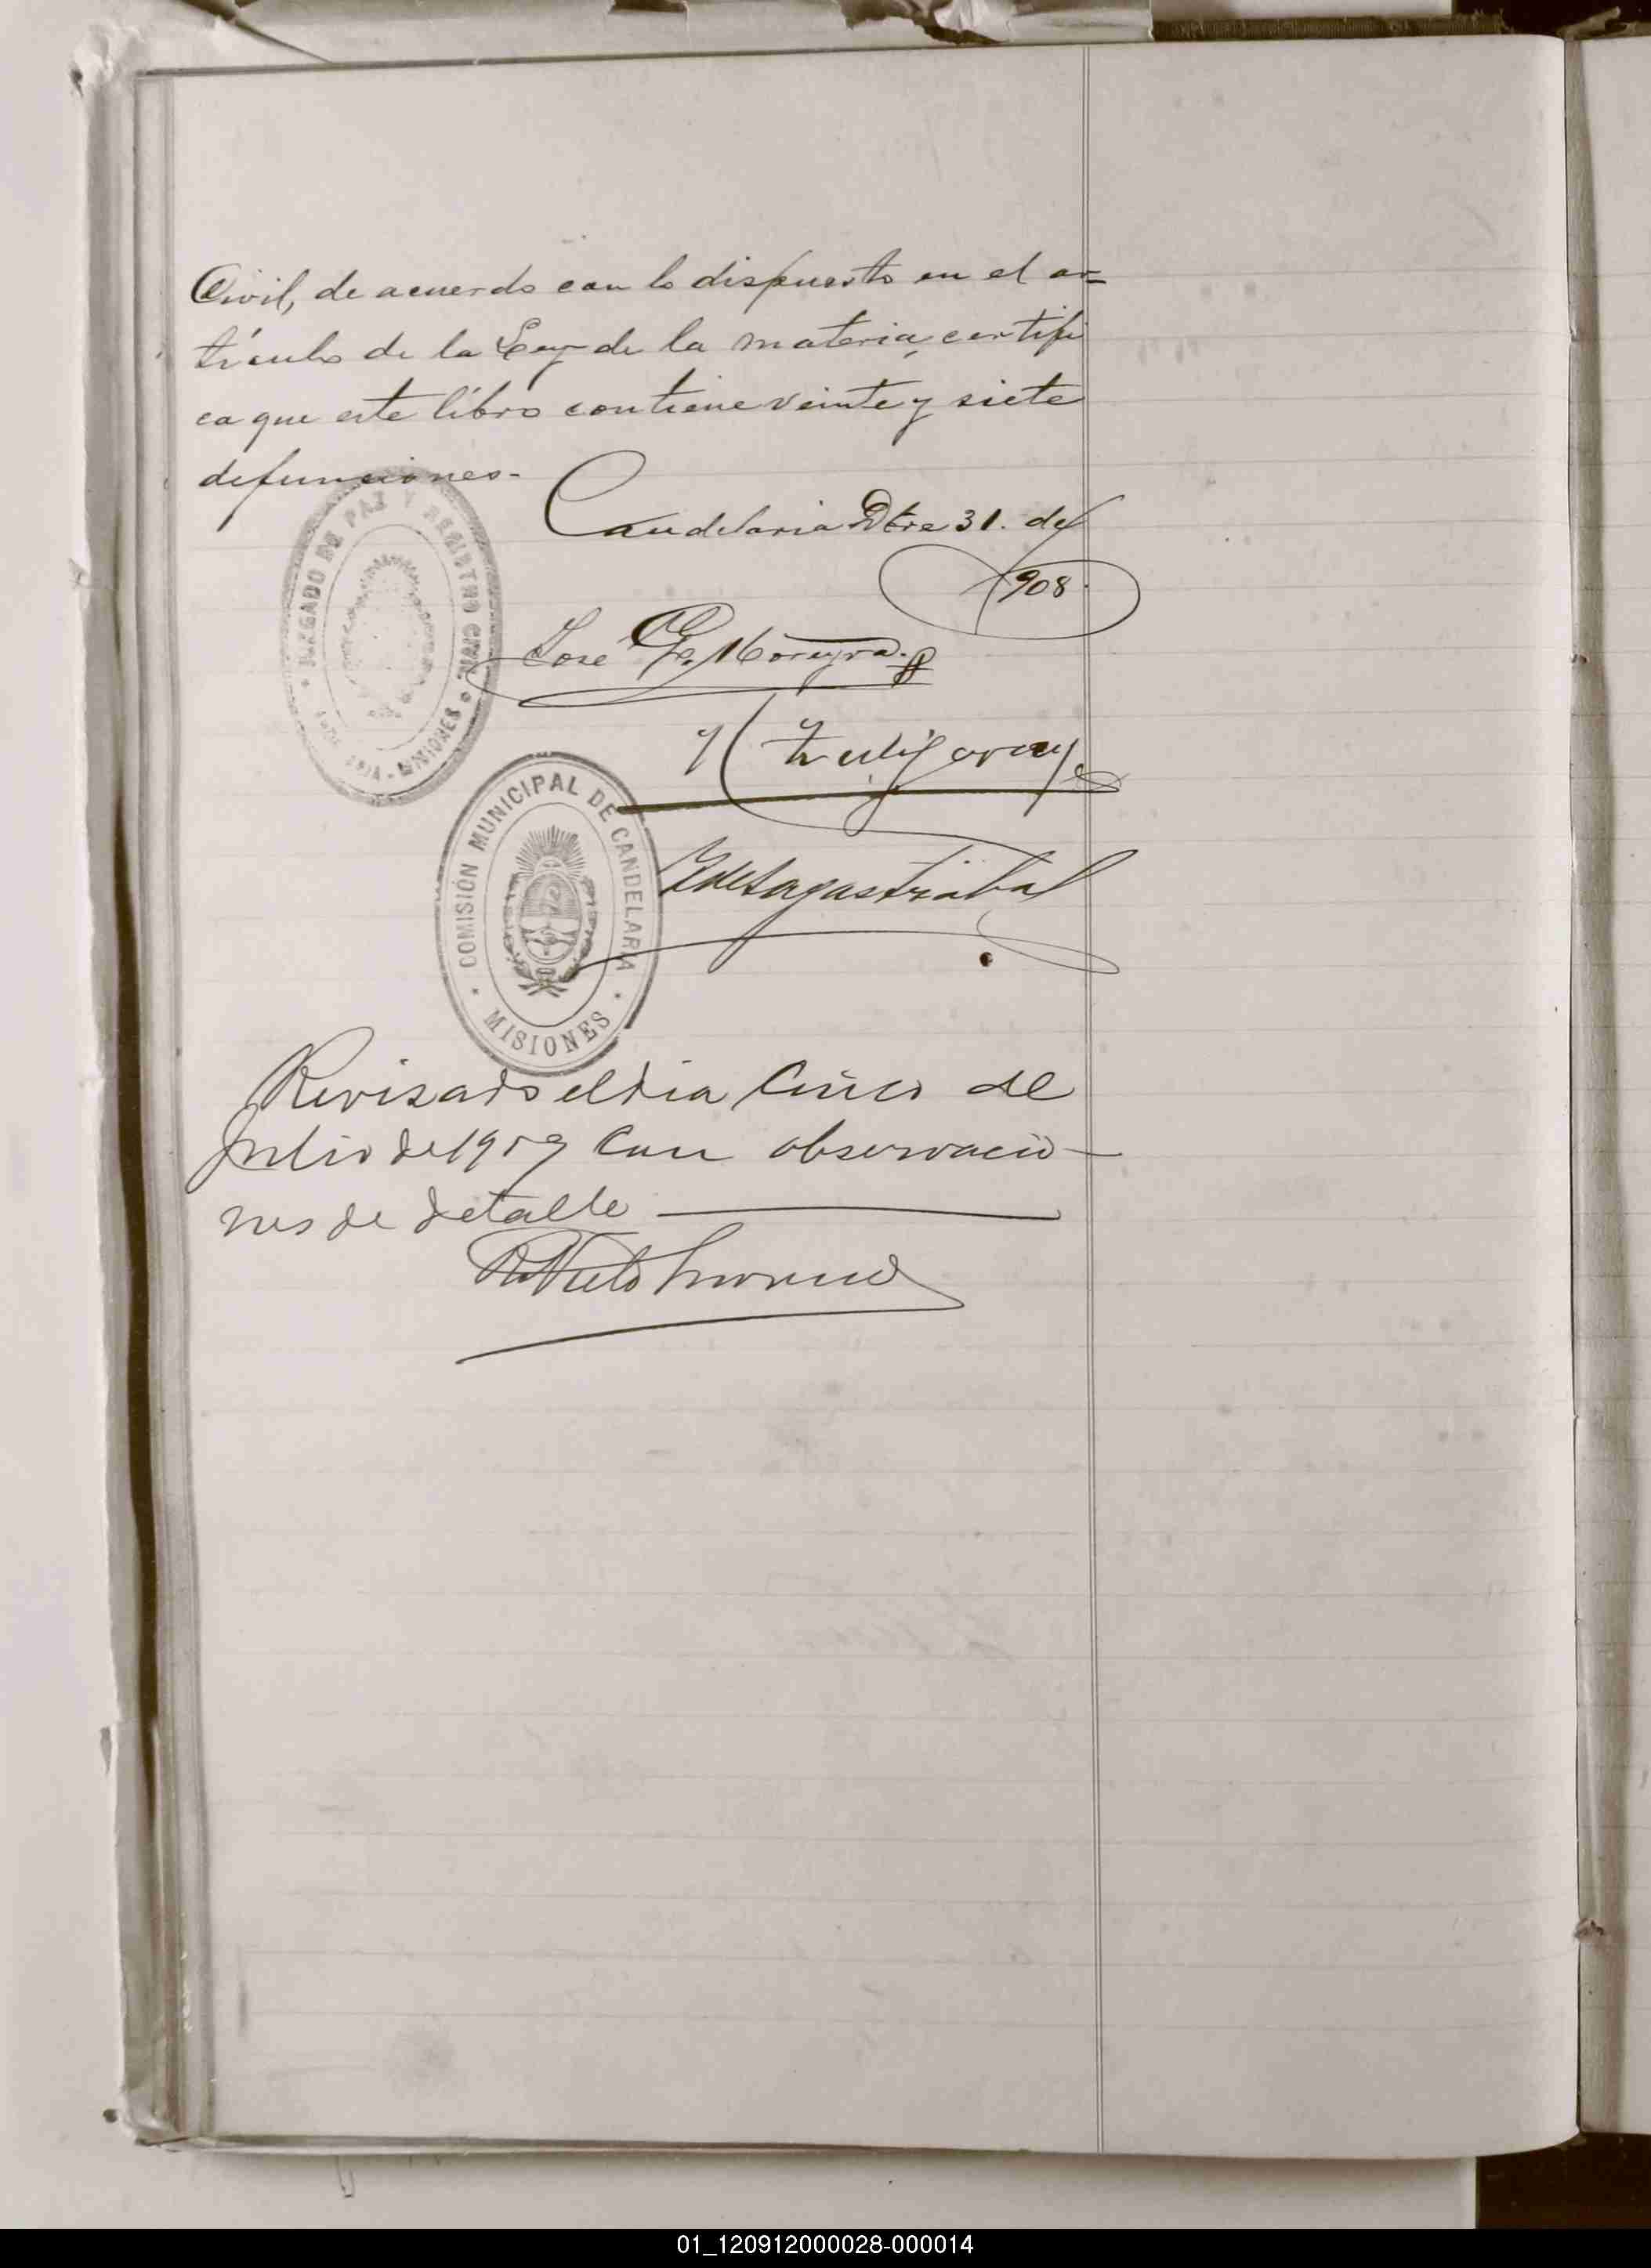 Civil, de acuerdo con lo dispuesto en el ar=
tículo de la Ley de la materia, certifi
ca que este libro contiene veinte y siete
defunciones.-
Candelaria Dbre 31. de
908.
JUZGADO DE PAZ Y REGISTRO CIVIL • MISIONES
José G. Moreyra.
COMISIÓN MUNICIPAL DE CANDELARIA
• MISIONES •
Revisado el dia Cinco de
Julio de 1909 Con observacio-
nes de detalle
01_120912000028-000014